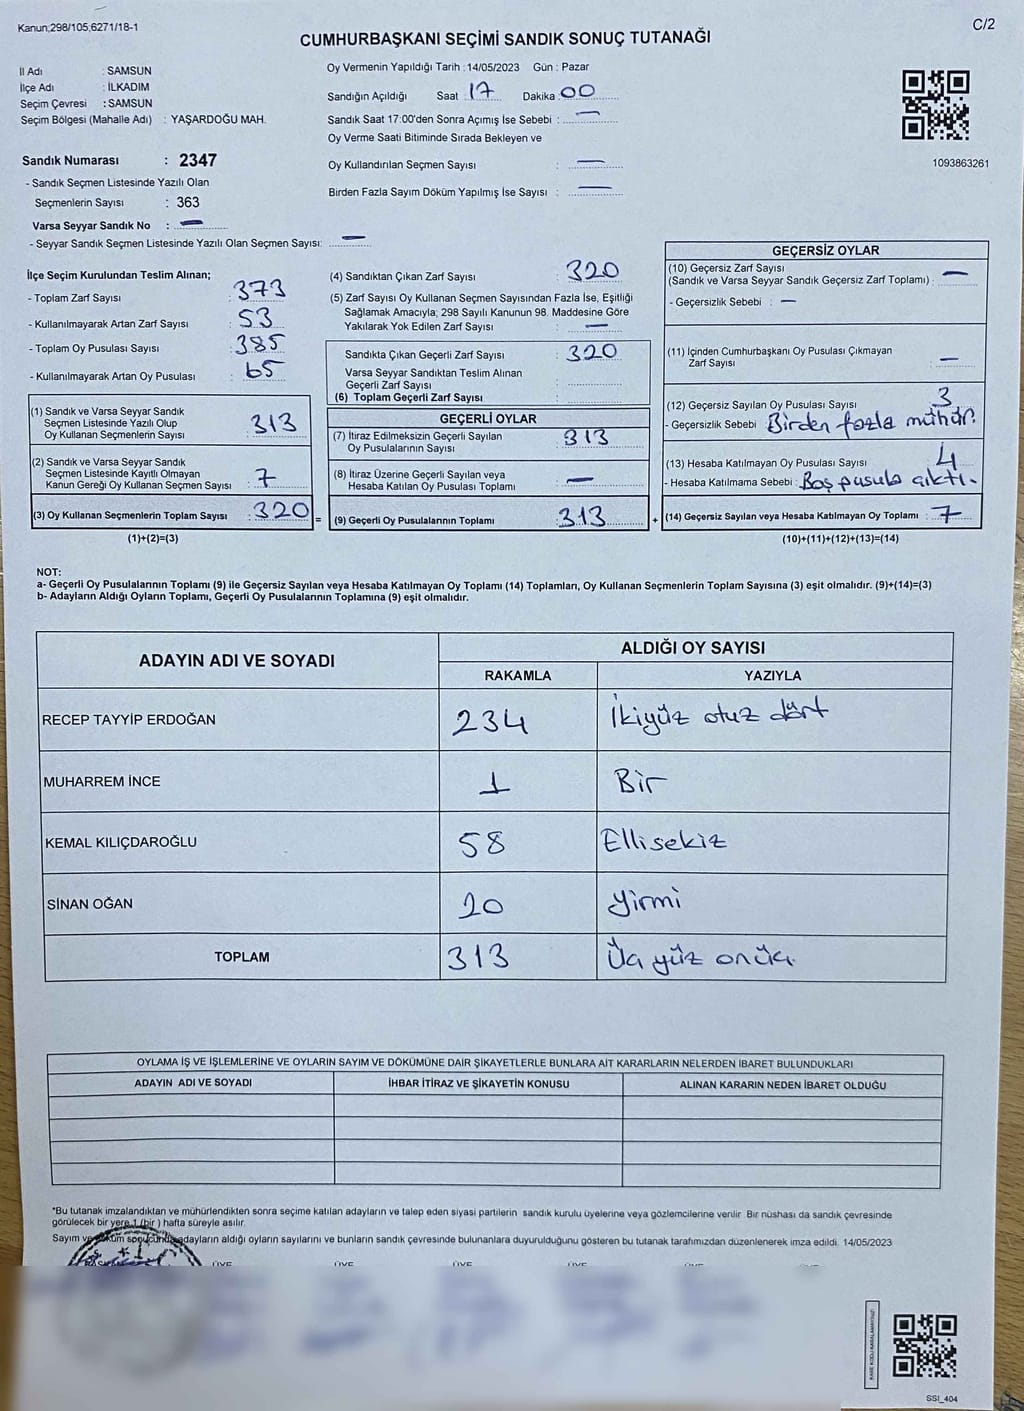 Kanun;298/105;6271/18-1
C/2
CUMHURBAŞKANI SEÇİMİ SANDIK SONUÇ TUTANAĞI
İl Adı : SAMSUN
İlçe Adı : İLKADIM
Seçim Çevresi : SAMSUN
Seçim Bölgesi (Mahalle Adı) : YAŞARDOĞU MAH.
Sandık Numarası : 2347
- Sandık Seçmen Listesinde Yazılı Olan
Seçmenlerin Sayısı : 363
Varsa Seyyar Sandık No : —
- Seyyar Sandık Seçmen Listesinde Yazılı Olan Seçmen Sayısı: —
Oy Vermenin Yapıldığı Tarih : 14/05/2023 Gün : Pazar
Sandığın Açıldığı Saat : 17 Dakika : 00
Sandık Saat 17:00'den Sonra Açımış İse Sebebi : —
Oy Verme Saati Bitiminde Sırada Bekleyen ve
Oy Kullandırılan Seçmen Sayısı : —
Birden Fazla Sayım Döküm Yapılmış İse Sayısı : —
1093863261
İlçe Seçim Kurulundan Teslim Alınan;
- Toplam Zarf Sayısı : 373
- Kullanılmayarak Artan Zarf Sayısı : 53
- Toplam Oy Pusulası Sayısı : 385
- Kullanılmayarak Artan Oy Pusulası : 65
(1) Sandık ve Varsa Seyyar Sandık
Seçmen Listesinde Yazılı Olup
Oy Kullanan Seçmenlerin Sayısı : 313
(2) Sandık ve Varsa Seyyar Sandık
Seçmen Listesinde Kayıtlı Olmayan
Kanun Gereği Oy Kullanan Seçmen Sayısı : 7
(3) Oy Kullanan Seçmenlerin Toplam Sayısı : 320 =
(1)+(2)=(3)
(4) Sandıktan Çıkan Zarf Sayısı : 320
(5) Zarf Sayısı Oy Kullanan Seçmen Sayısından Fazla İse, Eşitliği
Sağlamak Amacıyla; 298 Sayılı Kanunun 98. Maddesine Göre
Yakılarak Yok Edilen Zarf Sayısı : —
Sandıkta Çıkan Geçerli Zarf Sayısı : 320
Varsa Seyyar Sandıktan Teslim Alınan
Geçerli Zarf Sayısı :
(6) Toplam Geçerli Zarf Sayısı :
GEÇERLİ OYLAR
(7) İtiraz Edilmeksizin Geçerli Sayılan
Oy Pusulalarının Sayısı : 313
(8) İtiraz Üzerine Geçerli Sayılan veya
Hesaba Katılan Oy Pusulası Toplamı : —
(9) Geçerli Oy Pusulalarının Toplamı : 313 +
GEÇERSİZ OYLAR
(10) Geçersiz Zarf Sayısı
(Sandık ve Varsa Seyyar Sandık Geçersiz Zarf Toplamı) : —
- Geçersizlik Sebebi : —
(11) İçinden Cumhurbaşkanı Oy Pusulası Çıkmayan
Zarf Sayısı : —
(12) Geçersiz Sayılan Oy Pusulası Sayısı : 3
- Geçersizlik Sebebi : Birden fazla mühür.
(13) Hesaba Katılmayan Oy Pusulası Sayısı : 4
- Hesaba Katılmama Sebebi : Boş pusula çıktı.
(14) Geçersiz Sayılan veya Hesaba Katılmayan Oy Toplamı : 7
(10)+(11)+(12)+(13)=(14)
NOT:
a- Geçerli Oy Pusulalarının Toplamı (9) ile Geçersiz Sayılan veya Hesaba Katılmayan Oy Toplamı (14) Toplamları, Oy Kullanan Seçmenlerin Toplam Sayısına (3) eşit olmalıdır. (9)+(14)=(3)
b- Adayların Aldığı Oyların Toplamı, Geçerli Oy Pusulalarının Toplamına (9) eşit olmalıdır.
ADAYIN ADI VE SOYADI
ALDIĞI OY SAYISI
RAKAMLA YAZIYLA
RECEP TAYYİP ERDOĞAN 234 İkiyüz otuz dört
MUHARREM İNCE 1 Bir
KEMAL KILIÇDAROĞLU 58 Ellisekiz
SİNAN OĞAN 20 Yirmi
TOPLAM 313 Üç yüz onüç
OYLAMA İŞ VE İŞLEMLERİNE VE OYLARIN SAYIM VE DÖKÜMÜNE DAİR ŞİKAYETLERLE BUNLARA AİT KARARLARIN NELERDEN İBARET BULUNDUKLARI
ADAYIN ADI VE SOYADI İHBAR İTİRAZ VE ŞİKAYETİN KONUSU ALINAN KARARIN NEDEN İBARET OLDUĞU
*Bu tutanak imzalandıktan ve mühürlendikten sonra seçime katılan adayların ve talep eden siyasi partilerin sandık kurulu üyelerine veya gözlemcilerine verilir. Bir nüshası da sandık çevresinde
görülecek bir yere 1 (bir ) hafta süreyle asılır.
Sayım ve döküm sonucunda adayların aldığı oyların sayılarını ve bunların sandık çevresinde bulunanlara duyurulduğunu gösteren bu tutanak tarafımızdan düzenlenerek imza edildi. 14/05/2023
ÜYE ÜYE ÜYE ÜYE ÜYE
KARE KODU KARALAMAYINIZ!
SSI_404